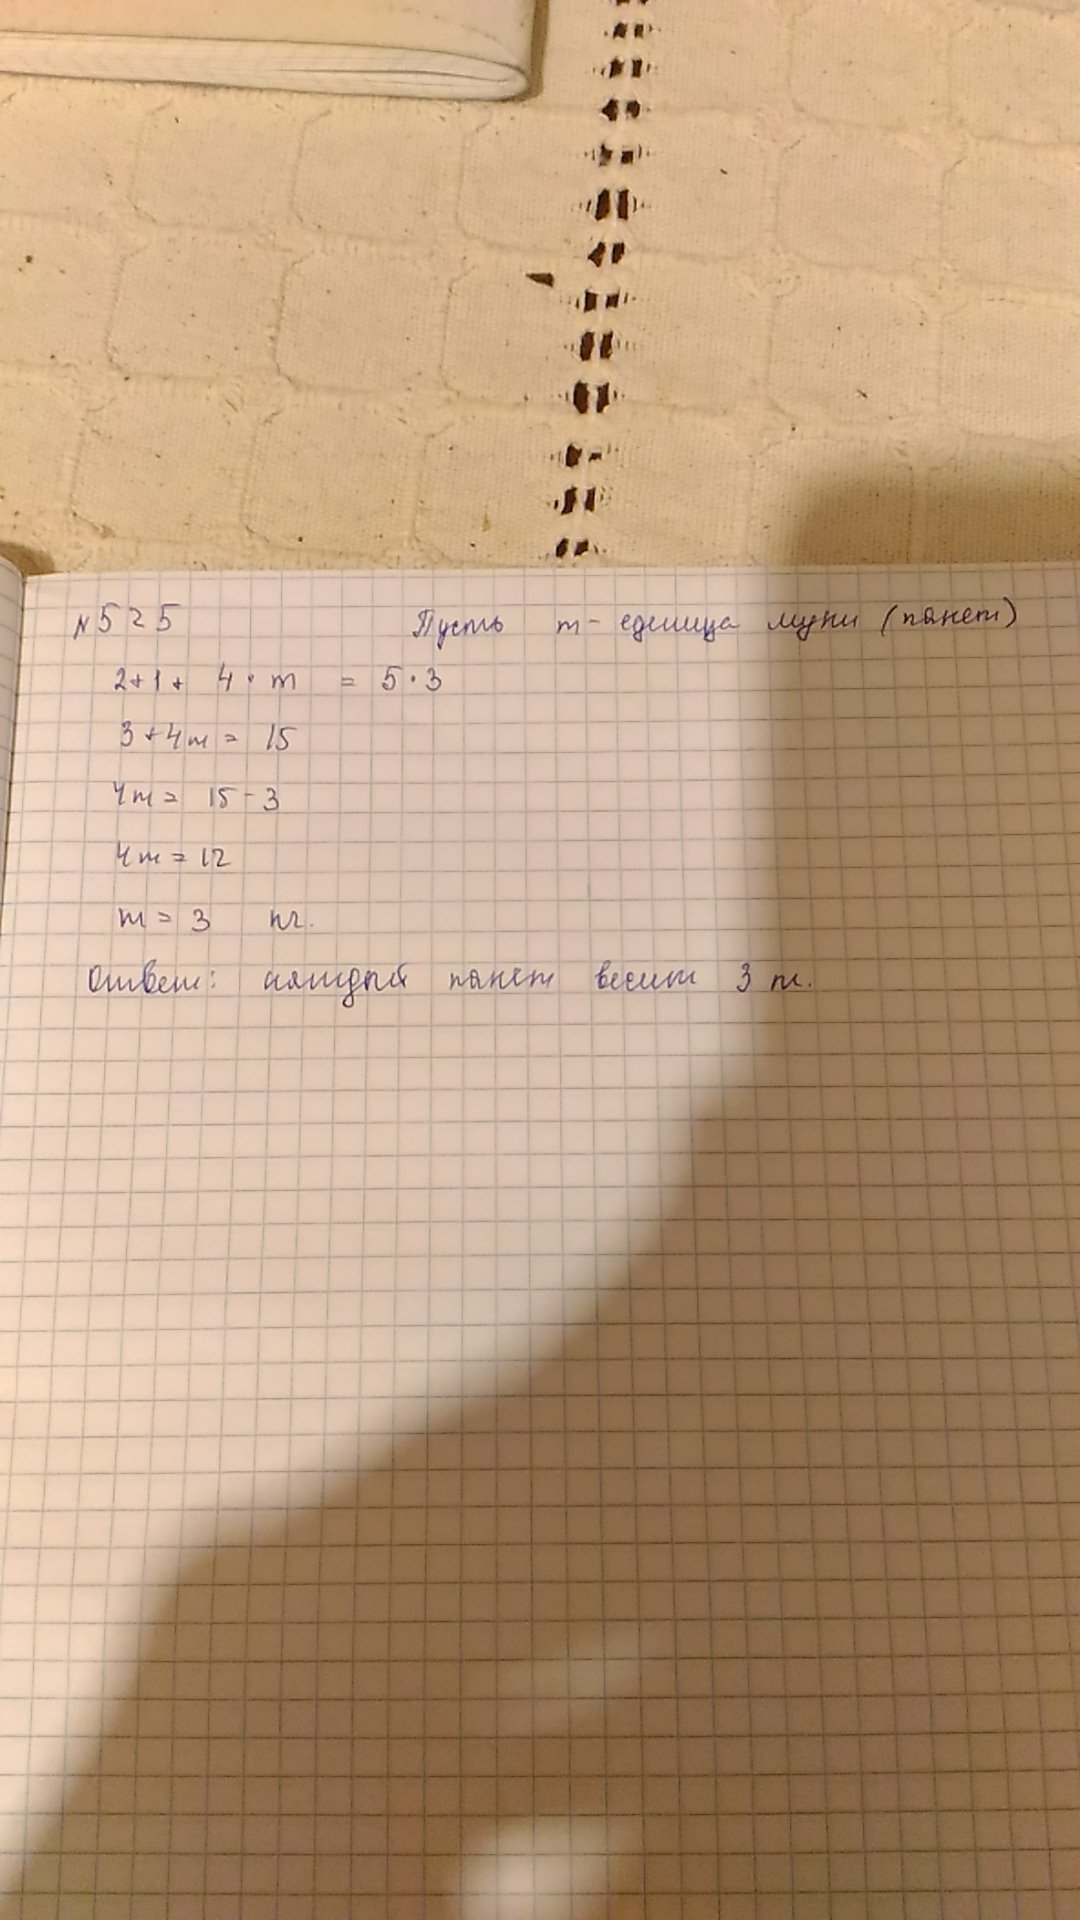 №525 Пусть m - еденица муки (пакет)
2+1+ 4·m = 5·3
3+4m = 15
4m = 15-3
4m = 12
m = 3 кг.
Ответ: каждый пакет весит 3 кг.